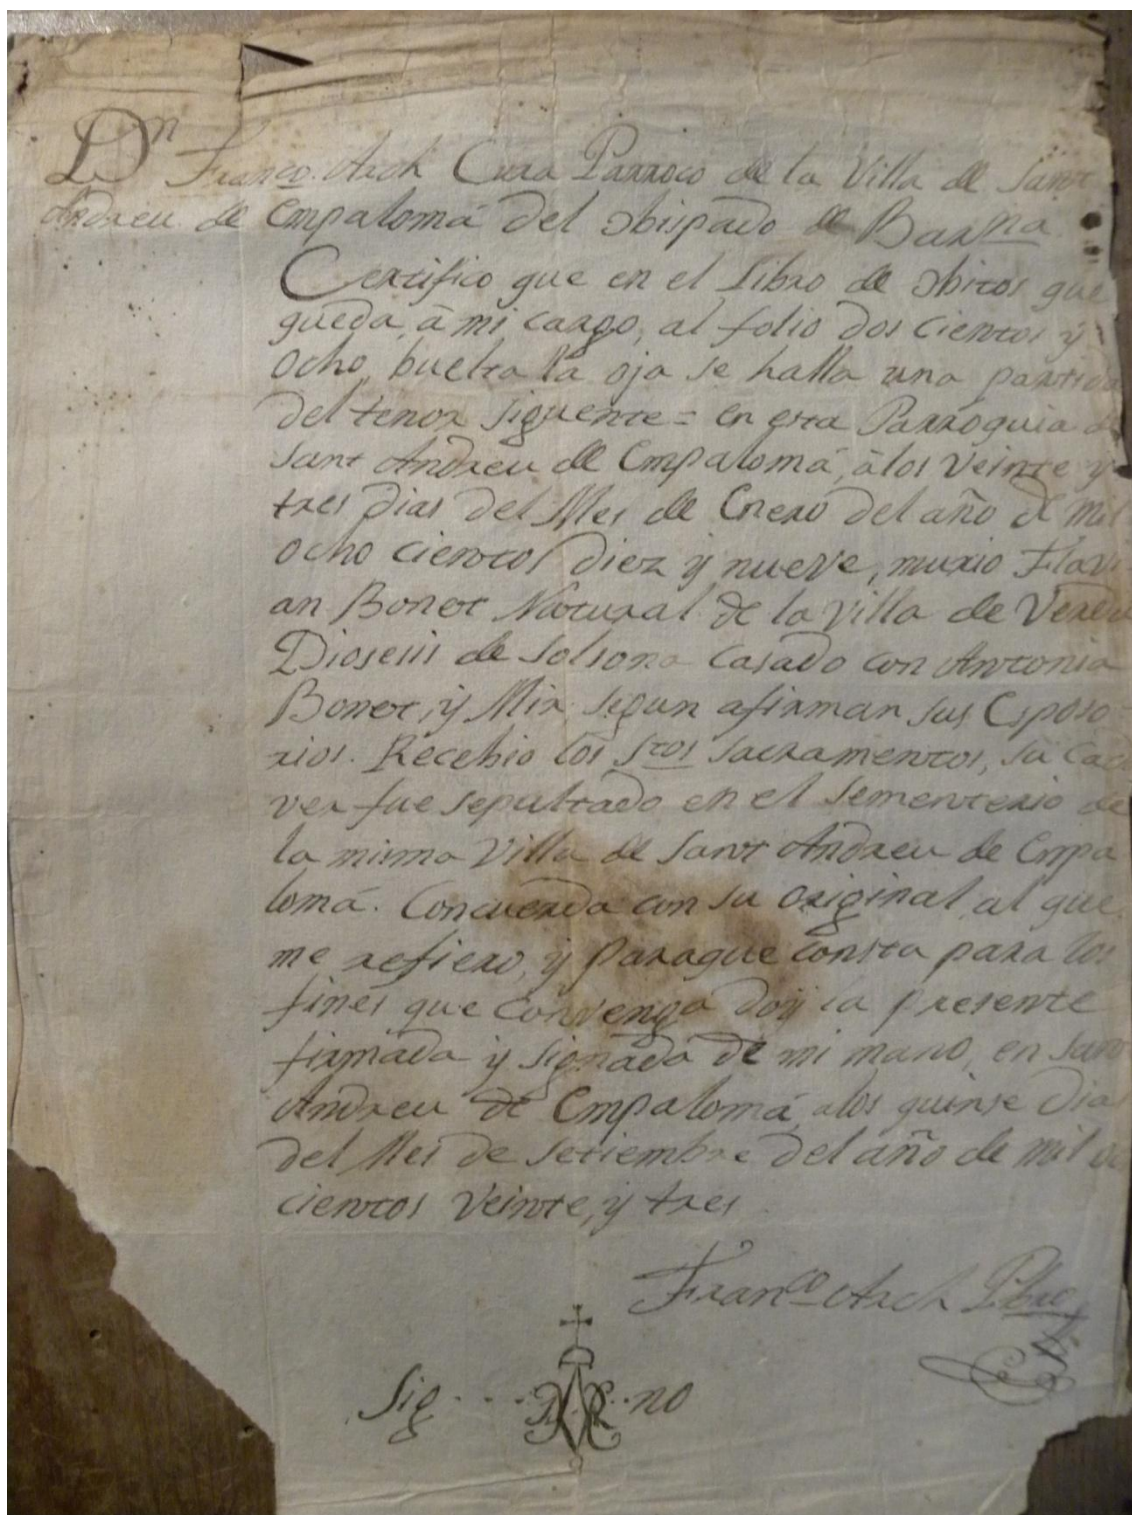 Dn Franco. Arch Cura Parroco de la Villa de Sant
Andreu de Empalomá del Obispado de Barna
Certifico que en el Libro de Obitos que
queda à mi cargo, al folio dos cientos y
Ocho, buelta la oja se halla una partida
del tenor siguente = en esta Parroquia de
Sant Andreu de Empalomá, à los veinte y
tres dias del Mes de Enero del año de mil
ocho cientos diez y nueve, murio Flavi
an Bonet Natural de la villa de Verdu
Diosesis de Solsona Casado con Antonia
Bonet, y Mir segun afirman sus Esposo
rios. Recebio los Stos Sacramentos, su Cada
ver fue sepultado en el Sementerio de
la misma Villa de Sant Andreu de Empa
lomá. Concuerda con su Original, al que
me refiero, y paraque consta para los
fines que convenga doy la presente
firmada y signada de mi mano, en Sant
Andreu de Empalomá, alos quinse dias
del Mes de Setiembre del año de mil
cientos veinte, y tres
Franco Arch Pbro
Sig no